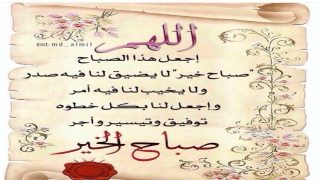 inst:md_almil
اللهم
إجعل هذا الصباح
"صباح خير" لا يضيق لنا فيه صدر
ولا يخيب لنا فيه أمر
واجعل لنا بكل خطوه
توفيق وتيسير وأجر
صباح الخير